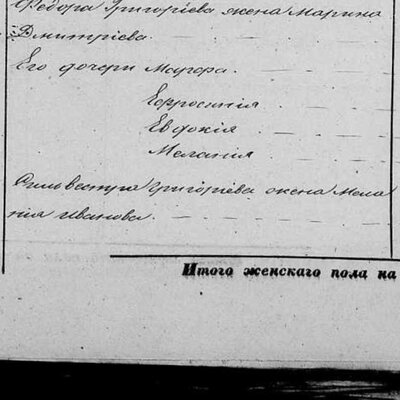 Федора Григоріева жена Марина
Дмитріева.
Его дочери Мавра.
Ефросинія
Евдокія
Меланія
Сильвестра Григоріева жена Мела
нія Иванова.
Итого женскаго пола на